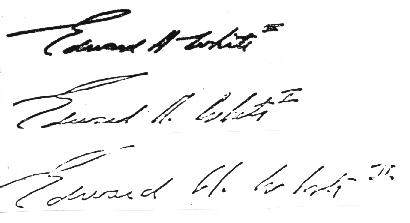 Edward H White III
Edward H. White II
Edward H. White II